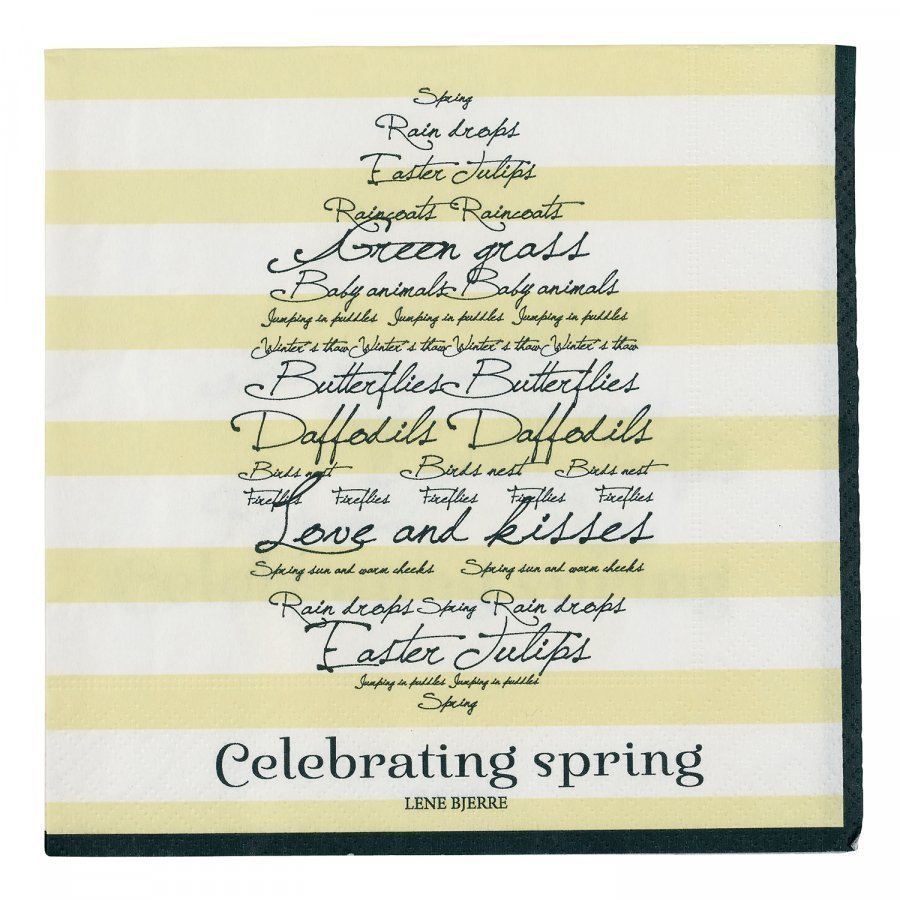 Spring
Rain drops
Easter Tulips
Raincoats Raincoats
Green grass
Baby animals Baby animals
Jumping in puddles Jumping in puddles Jumping in puddles
Winter's thaw Winter's thaw Winter's thaw Winter's thaw
Butterflies Butterflies
Daffodils Daffodils
Birds nest Birds nest Birds nest
Fireflies Fireflies Fireflies Fireflies Fireflies
Love and kisses
Spring sun and warm cheeks Spring sun and warm cheeks
Rain drops Spring Rain drops
Easter Tulips
Jumping in puddles Jumping in puddles
Spring
Celebrating spring
LENE BJERRE